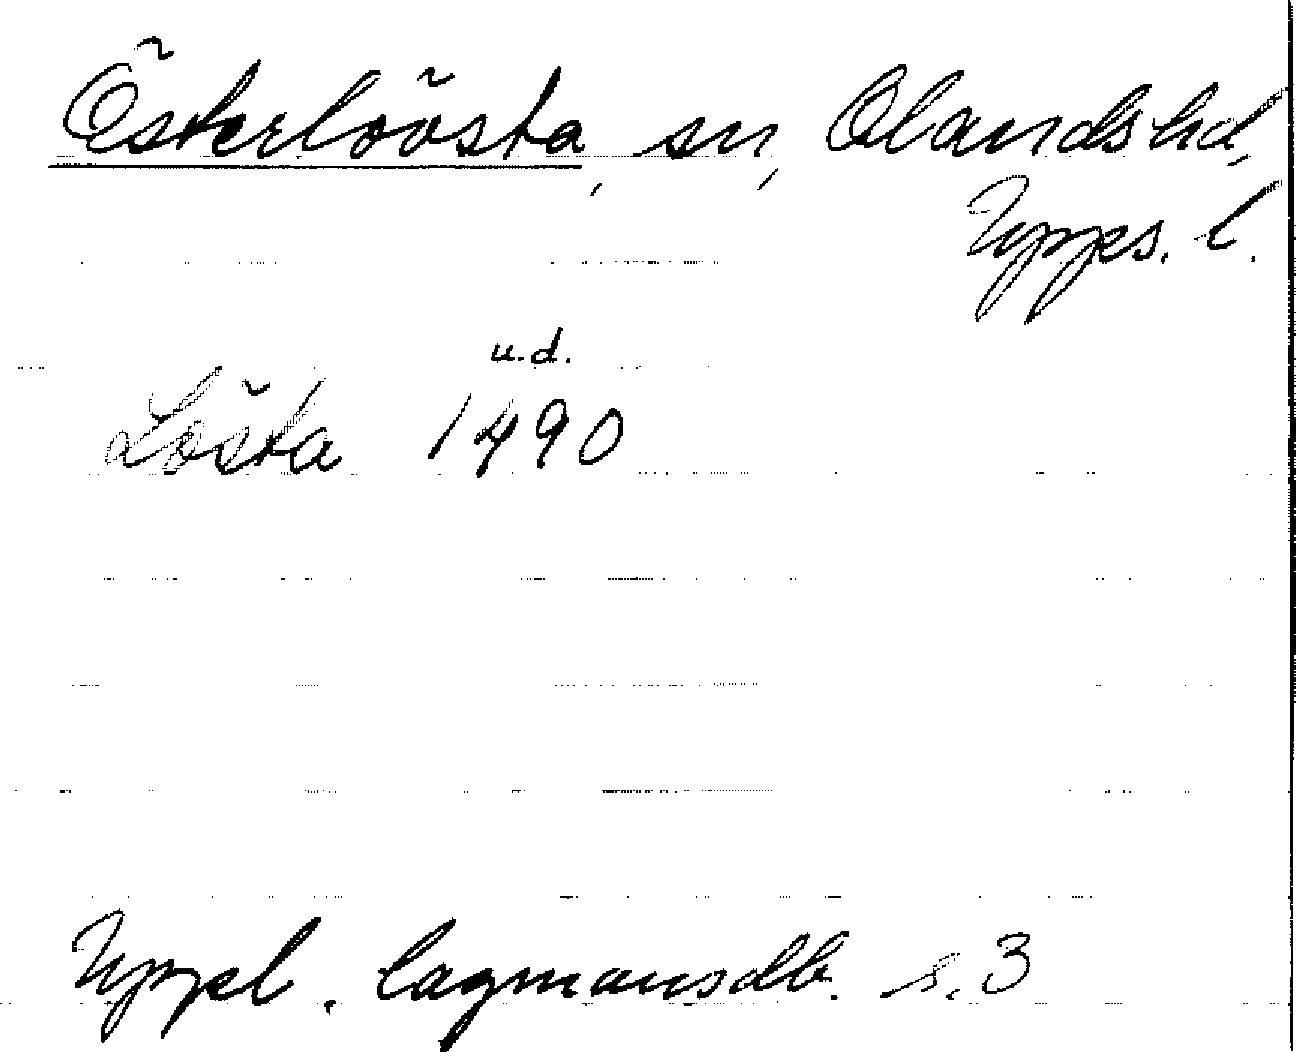 Österlövsta, sn, Olands hd,
Upps. l.
u.d.
Lösta 1490
Uppl. lagmansdb. s. 3